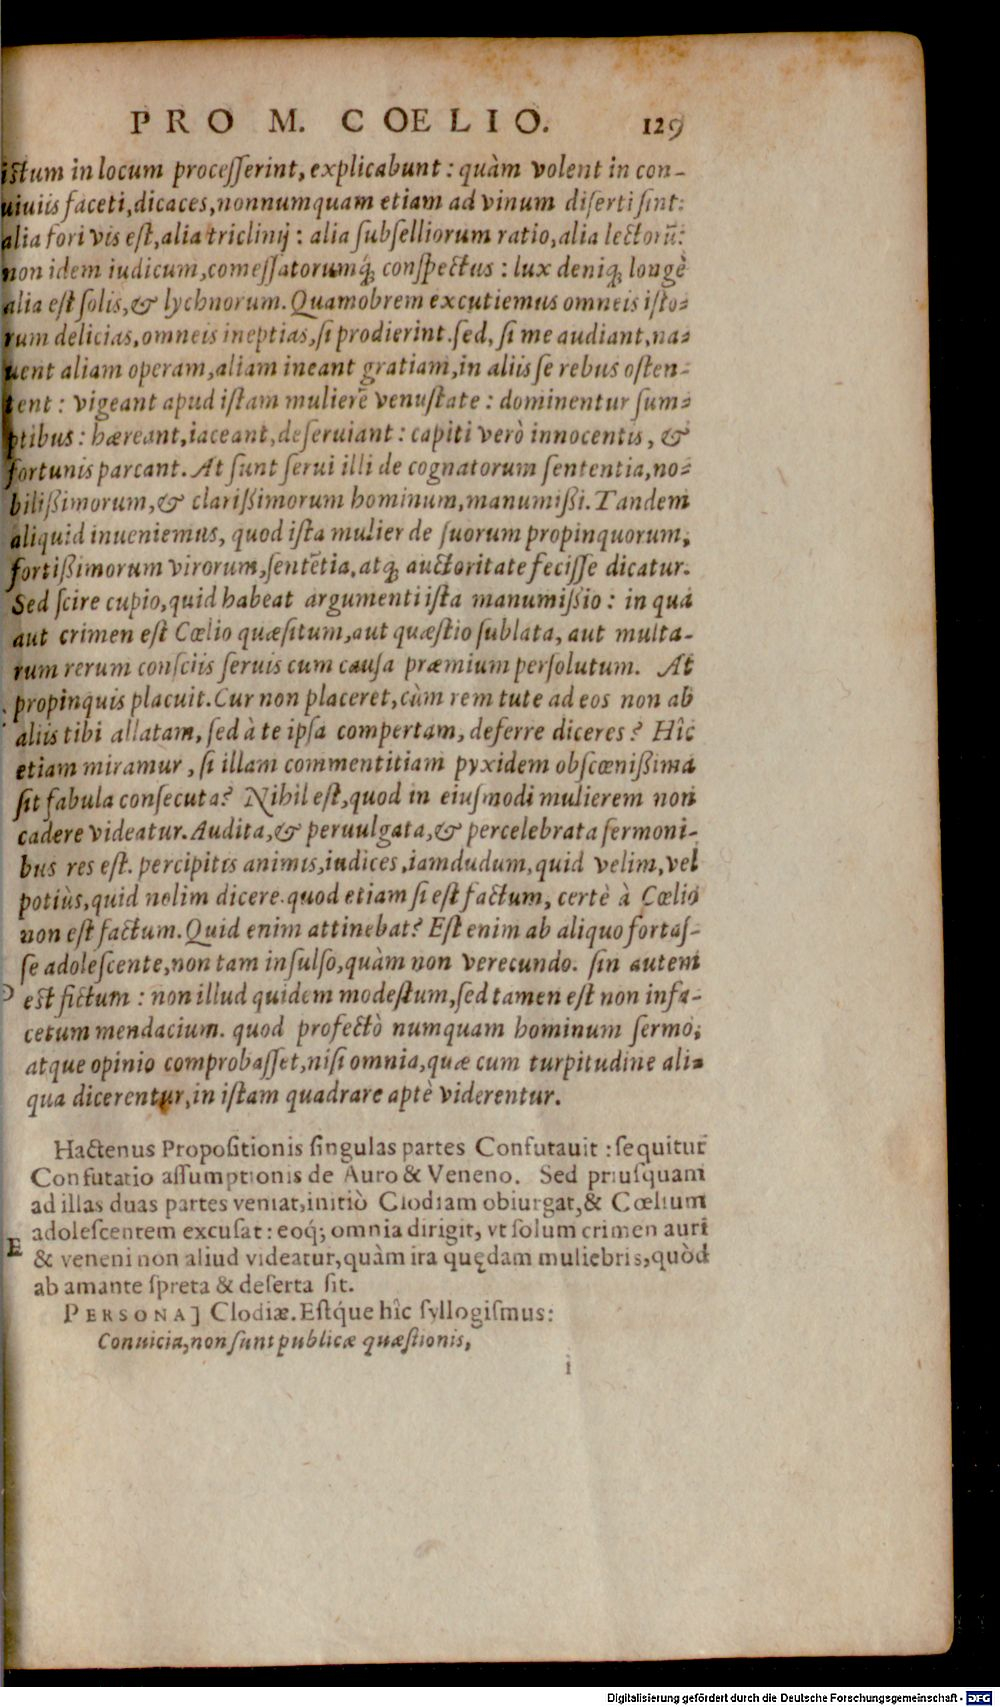 PRO M. COELIO. 129
istum in locum processerint, explicabunt : quàm volent in con-
uiuiis faceti, dicaces, nonnumquam etiam ad vinum diserti sint:
alia fori vis est, alia triclinij : alia subselliorum ratio, alia lectorũ:
non idem iudicum, comessatorumq́; conspectus : lux deniq; longè
alia est solis, & lychnorum. Quamobrem excutiemus omneis isto-
rum delicias, omneis ineptias, si prodierint. sed, si me audiant, na-
uent aliam operam, aliam ineant gratiam, in aliis se rebus osten-
tent : vigeant apud istam mulierẽ venustate : dominentur sum-
ptibus : hæreant, iaceant, deseruiant : capiti verò innocentis, &
fortunis parcant. At sunt serui illi de cognatorum sententia, no-
bilißimorum, & clarißimorum hominum, manumißi. Tandem
aliquid inueniemus, quod ista mulier de suorum propinquorum,
fortißimorum virorum, sentẽtia, atq; auctoritate fecisse dicatur.
Sed scire cupio, quid habeat argumenti ista manumißio : in qua
aut crimen est Cœlio quæsitum, aut quæstio sublata, aut multa-
rum rerum consciis seruis cum causa præmium persolutum. At
propinquis placuit. Cur non placeret, cùm rem tute ad eos non ab
aliis tibi allatam, sed à te ipsa compertam, deferre diceres? Hîc
etiam miramur, si illam commentitiam pyxidem obscœnißima
sit fabula consecuta? Nihil est, quod in eiusmodi mulierem non
cadere videatur. Audita, & peruulgata, & percelebrata sermoni-
bus res est. percipitis animis, iudices, iamdudum, quid velim, vel
potiùs, quid nolim dicere. quod etiam si est factum, certè à Cœlio
non est factum. Quid enim attinebat? Est enim ab aliquo fortas-
se adolescente, non tam insulso, quàm non verecundo. sin autem
est fictum : non illud quidem modestum, sed tamen est non infa-
cetum mendacium. quod profectò numquam hominum sermo,
atque opinio comprobasset, nisi omnia, quæ cum turpitudine ali-
qua dicerentur, in istam quadrare aptè viderentur.
Hactenus Propositionis singulas partes Confutauit : sequitur
Confutatio assumptionis de Auro & Veneno. Sed priusquam
ad illas duas partes veniat, initiò Clodiam obiurgat, & Cœlium
adolescentem excusat : eoq́; omnia dirigit, vt solum crimen auri
E & veneni non aliud videatur, quàm ira quędam muliebris, quòd
ab amante spreta & deserta sit.
PERSONA] Clodiæ. Estque hîc syllogismus:
Conuicia, non sunt publicæ quæstionis,
i
Digitalisierung gefördert durch die Deutsche Forschungsgemeinschaft - DFG